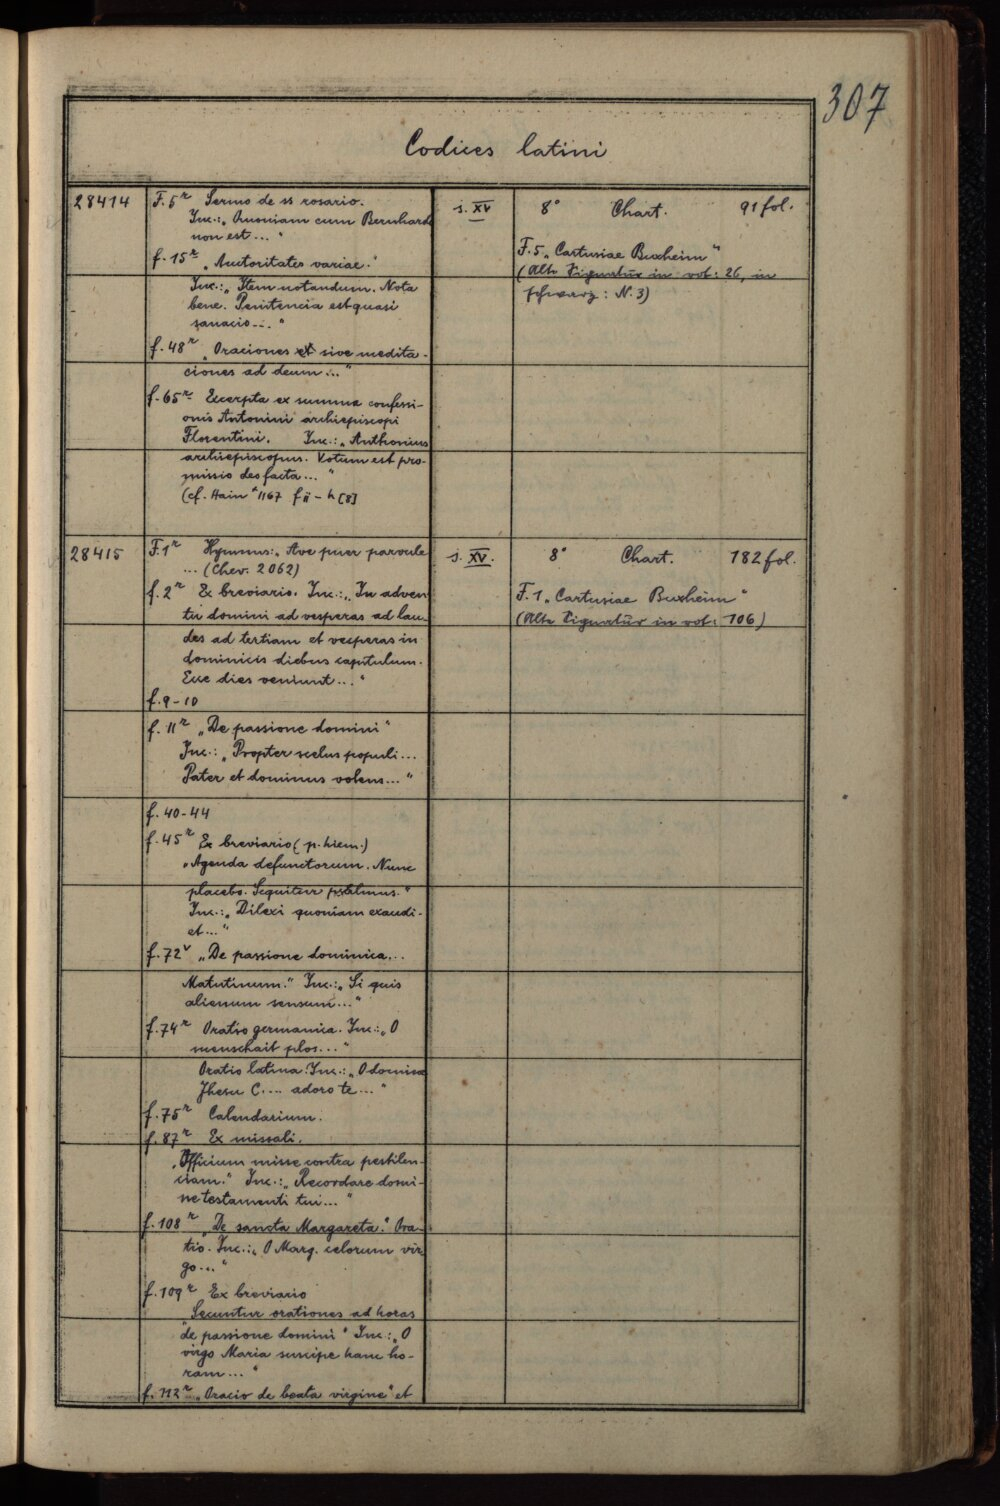 307
Codices latini
28414
F. 5r Sermo de ss rosario.
Inc.: „Quoniam cum Bernhardo
non est..."
f. 15r „Auctoritates variae."
Inc.: „Item notandum. Nota
bene. Penitencia est quasi
sanacio..."
f. 48r „Oraciones et sive medita-
ciones ad deum..."
f. 65r Excerpta ex summa confessi-
onis Antonini archiepiscopi
Florentini. Inc.: „Anthonius
archiepiscopus. Votum est pro-
missio deo facta..."
(cf. Hain *1167 f ii - h [8]
s. XV
8° Chart. 91 fol.
F. 5 „Cartusiae Buxheim"
(Alte Signatur in rot: 26, in
schwarz: N. 3)
28415
F. 1r Hymnus: „Ave puer parvule
... (Chev. 2062)
f. 2r Ex breviario. Inc.: „In adven-
tu domini ad vesperas ad lau-
des ad tertiam et vesperas in
dominicis diebus capitulum.
Ecce dies veniunt..."
f. 9-10
f. 11r „De passione domini"
Inc.: „Propter scelus populi...
Pater et dominus volens..."
f. 40-44
f. 45r Ex breviario (p. hiem.)
„Agenda defunctorum. Nunc
placebo. Sequitur psalmus."
Inc.: „Dilexi quoniam exaudi-
et..."
f. 72v „De passione dominica...
Matutinum." Inc.: „Si quis
alienum sensum..."
f. 74r Oratio germanica. Inc.: „O
menschait plos..."
Oratio latina. Inc.: „O domine
Jhesu C.... adoro te..."
f. 75r Calendarium.
f. 87r Ex missali.
„Officium misse contra pestilen-
ciam." Inc.: „Recordare domi-
ne testamenti tui..."
f. 108r „De sancta Margareta." Ora-
tio. Inc.: „O Marg. celorum vir-
go..."
f. 109r Ex breviario
„Secuntur orationes ad horas
de passione domini" Inc.: „O
virgo Maria suscipe hanc ho-
ram..."
f. 112r „Oracio de beata virgine" et
s. XV.
8° Chart. 182 fol.
F. 1 „Cartusiae Buxheim"
(Alte Signatur in rot: 106)